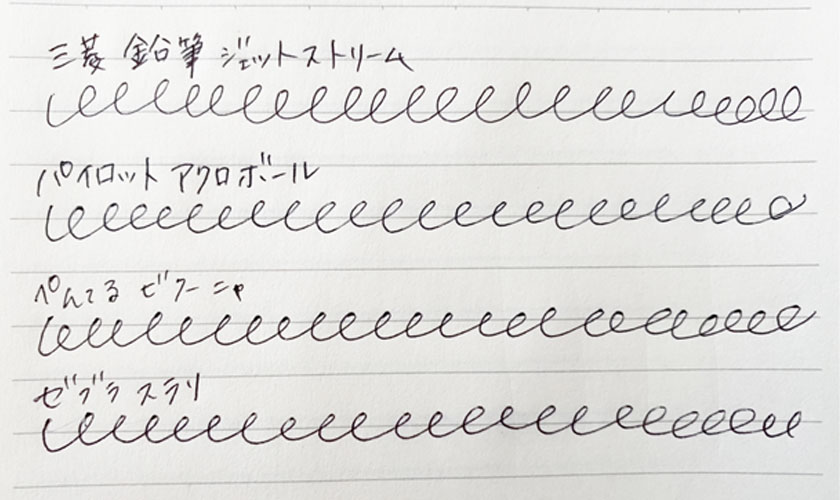 三菱 鉛筆 ジェットストリーム
パイロット アクロボール
ぺんてる ビクーニャ
ゼブラ スラリ